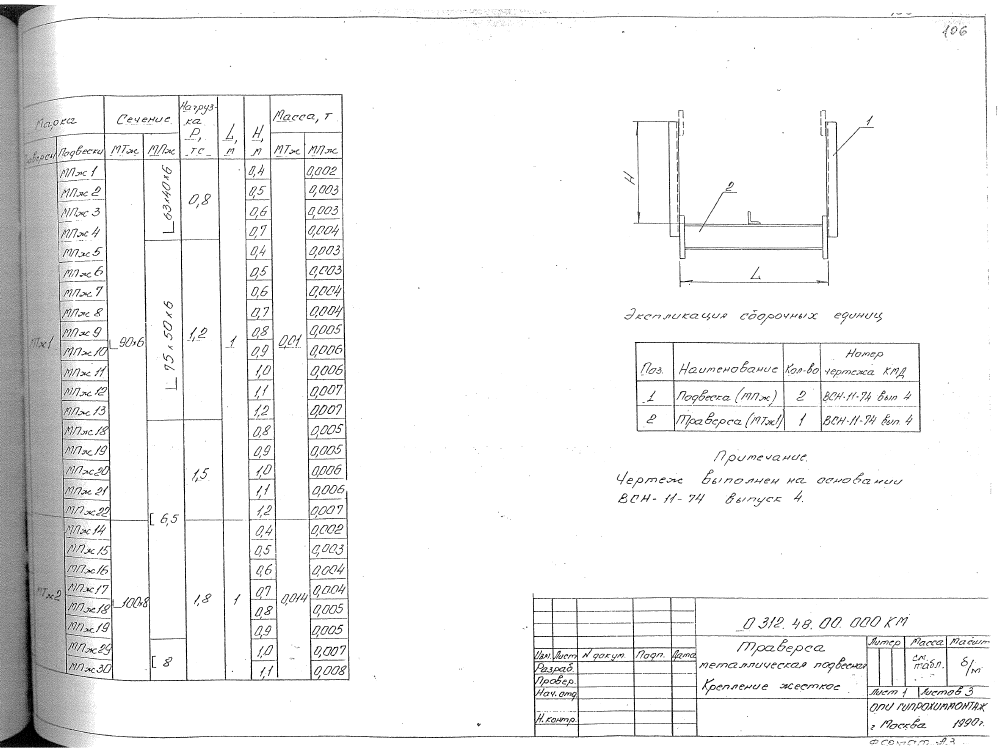 106
Марка Сечение Нагруз-ка Р, тс L, м H, м Масса, т
Подвески МТж МПж МТж МПж
МПж 1 0,4 0,002
МПж 2 0,5 0,003
МПж 3 0,6 0,003
МПж 4 0,7 0,004
∟63х40х6 0,8
МПж 5 0,4 0,003
МПж 6 0,5 0,003
МПж 7 0,6 0,004
МПж 8 0,7 0,004
МПж 9 0,8 0,005
МПж 10 0,9 0,006
МПж 11 1,0 0,006
МПж 12 1,1 0,007
МПж 13 1,2 0,007
МТж1 ∟90х6 ∟75х50х6 1,2 1 0,01
МПж 18 0,8 0,005
МПж 19 0,9 0,005
МПж 20 1,0 0,006
МПж 21 1,1 0,006
МПж 22 1,2 0,007
1,5
[ 6,5
МПж 14 0,4 0,002
МПж 15 0,5 0,003
МПж 16 0,6 0,004
МПж 17 0,7 0,004
МПж 18 0,8 0,005
МПж 19 0,9 0,005
МПж 29 1,0 0,007
МПж 30 1,1 0,008
МТж2 ∟100х8 [ 8 1,8 1 0,014
1
2
H
L
Экспликация сборочных единиц
Поз. Наименование Кол-во Номер чертежа КМД
1 Подвеска (МПж) 2 ВСН-11-74 вып 4
2 Траверса (МТж1) 1 ВСН-11-74 вып 4
Примечание.
Чертеж выполнен на основании
ВСН-11-74 выпуск 4.
0 312. 48. 00. 000 КМ
Изм. Лист № докум. Подп. Дата
Разраб.
Провер.
Нач. отд
Н. контр.
Траверса
металлическая подвесная
Крепление жесткое
Литер Масса Масшт
см. табл. б/м
Лист 1 Листов 3
ОПИ ГИПРОХИММОНТАЖ
г Москва 1990г.
Формат А3